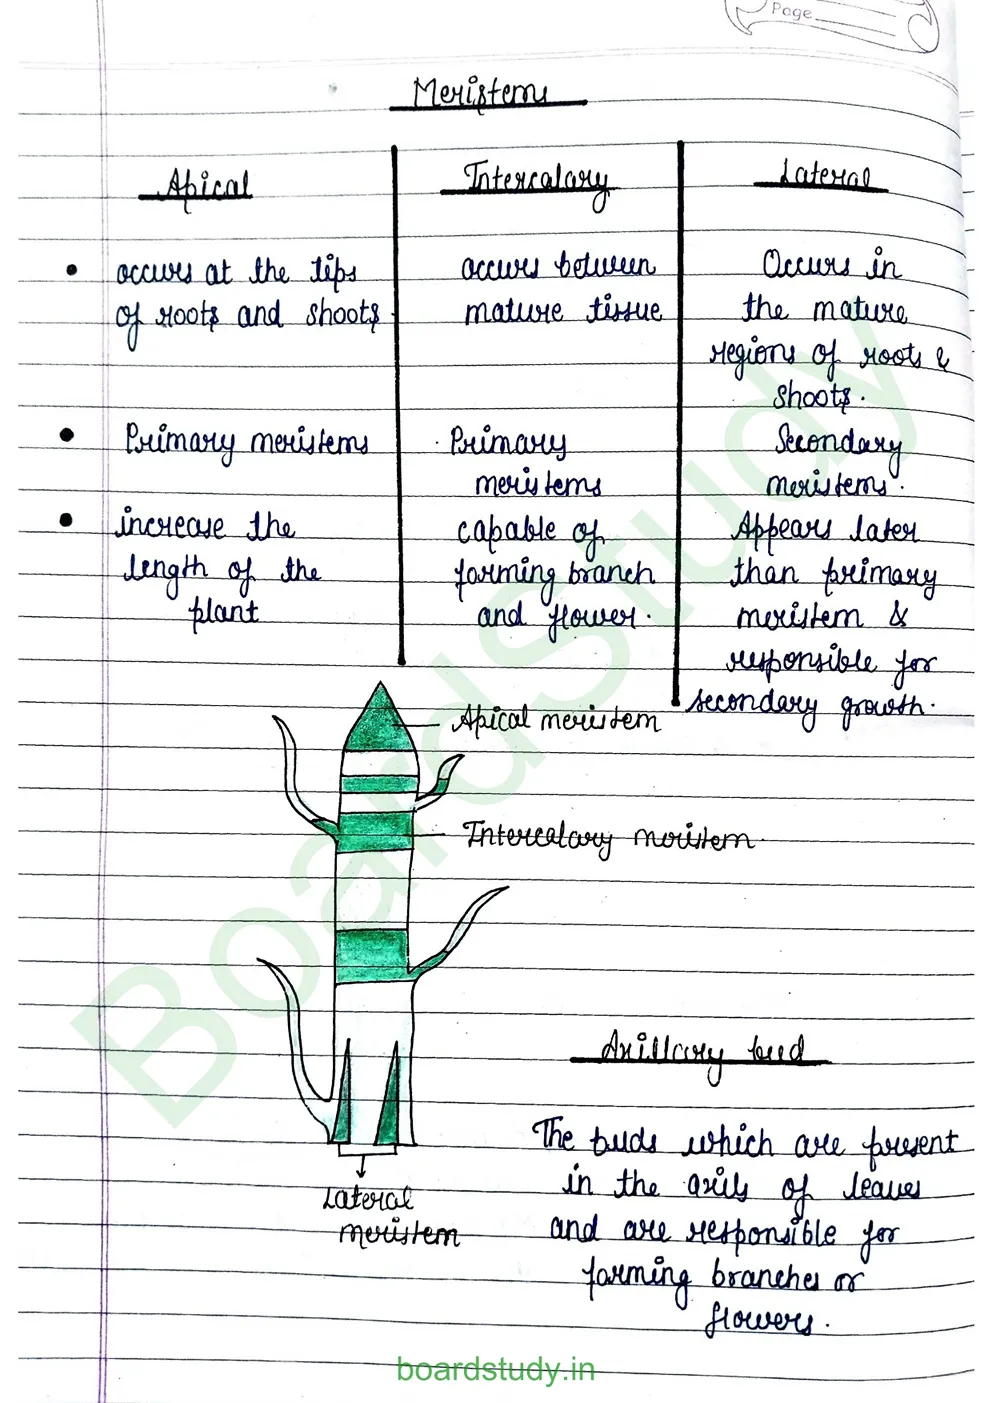 Page
Meristems
Apical
Intercalary
Lateral
• occurs at the tips
of roots and shoots.
occurs between
mature tissue
Occurs in
the mature
regions of roots &
shoots.
• Primary meristems
. Primary
meristems
Secondary
meristems.
• increase the
length of the
plant
capable of
forming branch
and flower.
Appears later
than primary
meristem &
responsible for
secondary growth.
Apical meristem
Intercalary meristem.
Lateral
meristem
Axillary bud
The buds which are present
in the axils of leaves
and are responsible for
forming branches or
flowers.
BoardStudy
boardstudy.in